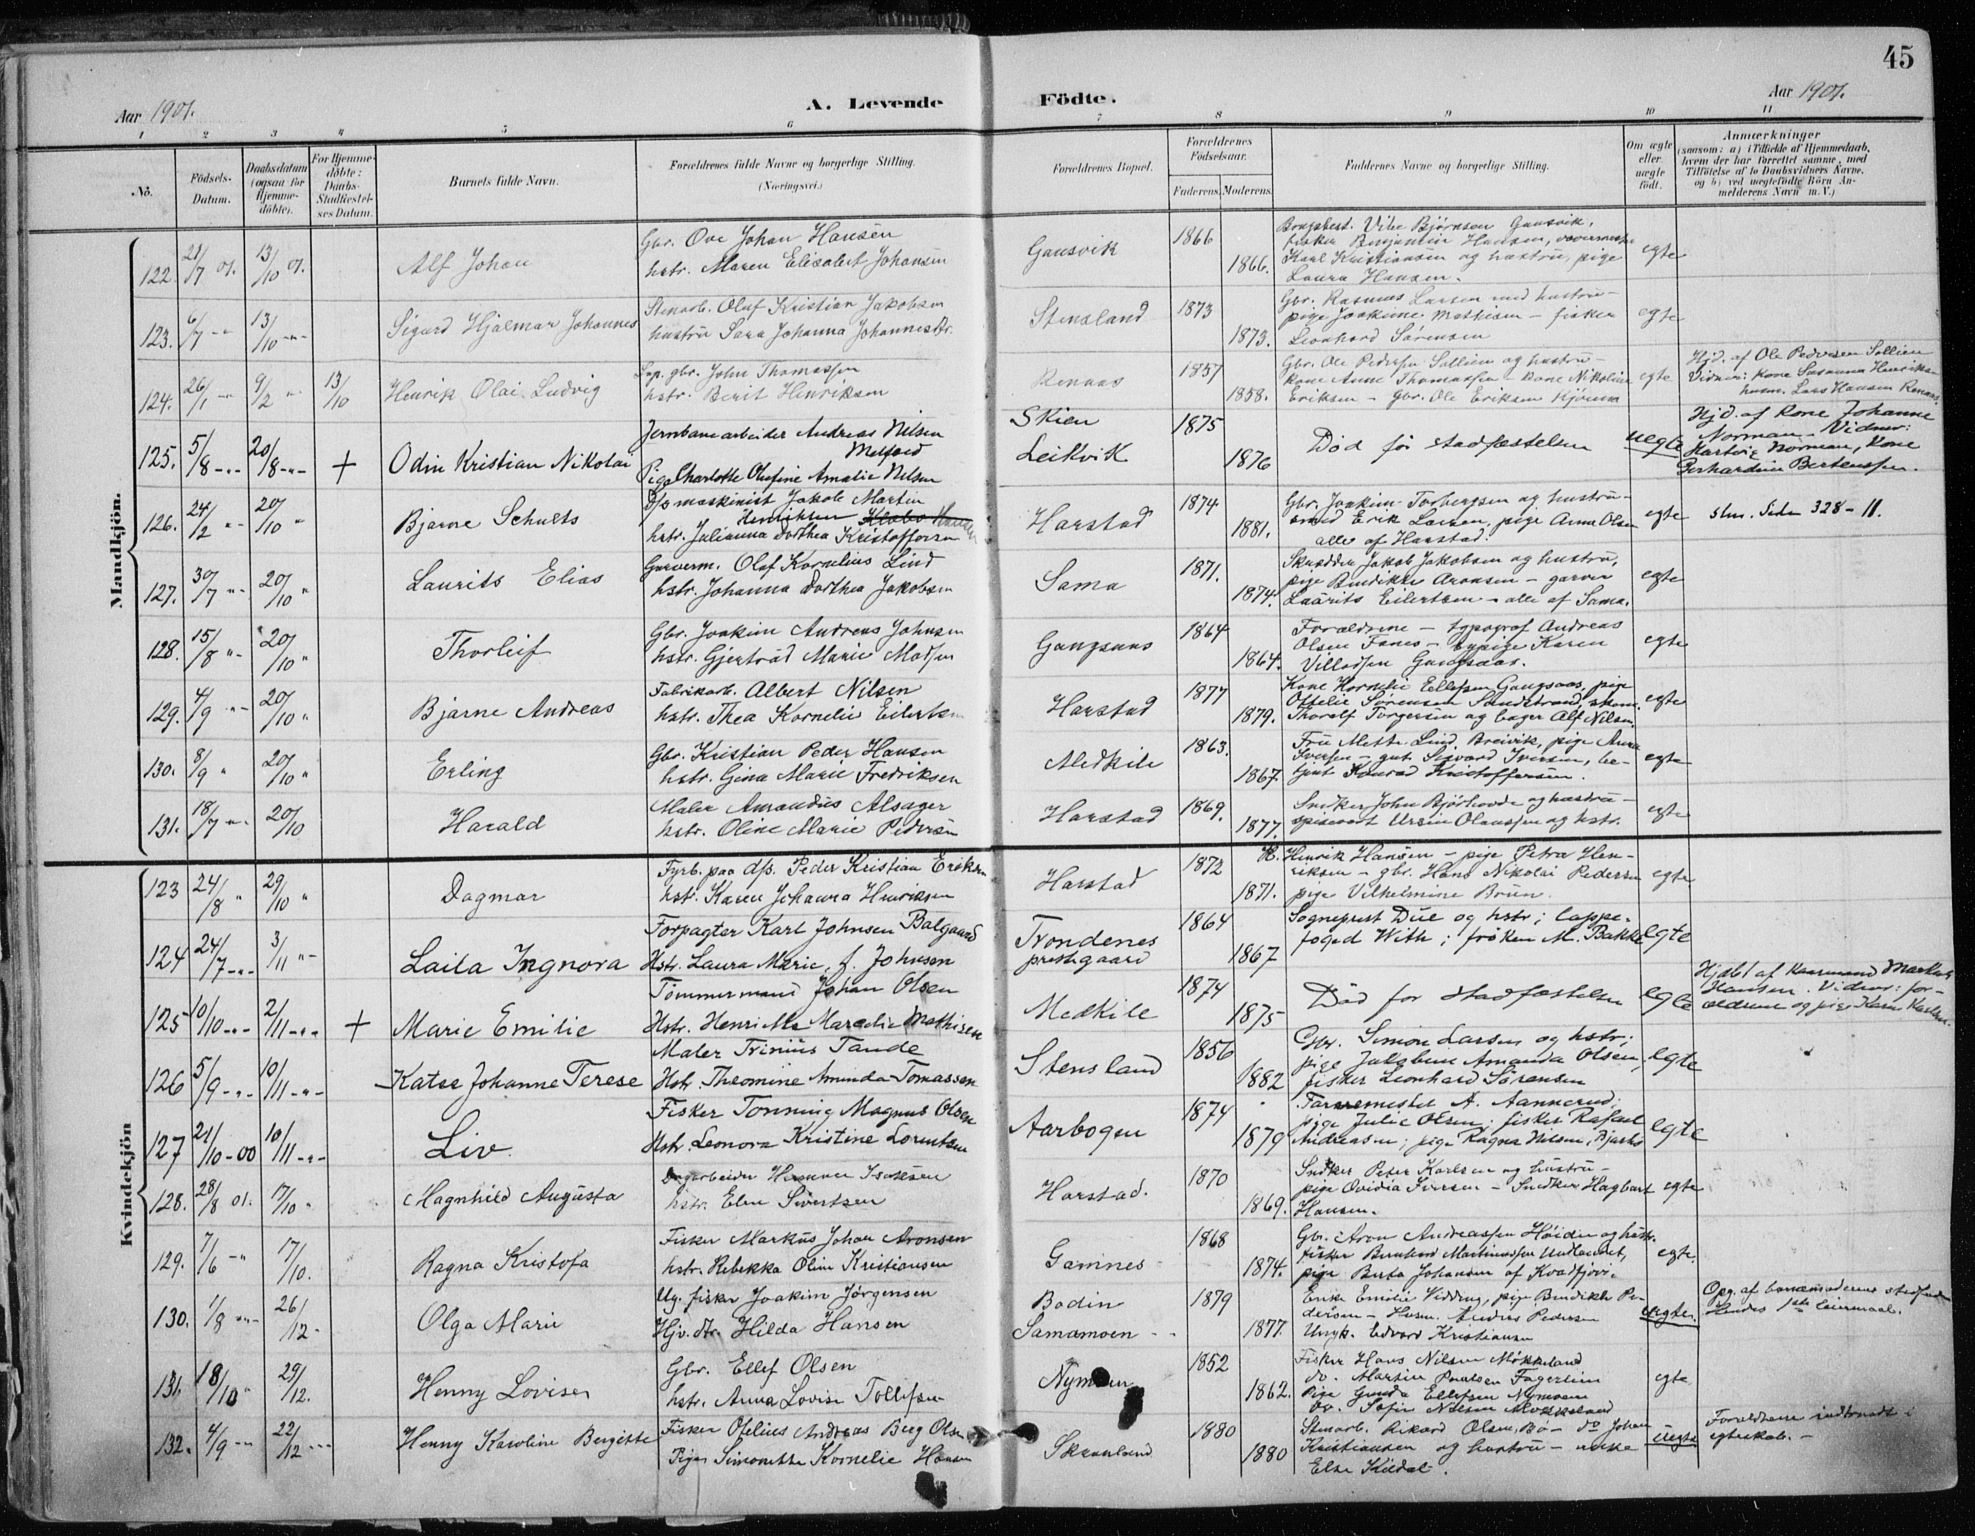 45
Aar 1901.
A. Levende Födte.
Aar 1901.
1 2 3 4 5 6 7 8 9 10 11
No.
Födsels-Datum.
Daabsdatum (ogsaa for Hjemme-döbte).
For Hjemme-döbte: Daabs-Stadfæstel-ses Datum.
Barnets fulde Navn.
Forældrenes fulde Navne og borgerlige Stilling.
(Næringsvei.)
Forældrenes Bopæl.
Forældrenes Födselsaar.
Faderens. Moderens.
Faddernes Navne og borgerlige Stilling.
Om ægte eller uægte födt.
Anmærkninger
(saasom: a) i Tilfælde af Hjemmedaab,
hvem der har forrettet samme, med
Tilföielse af to Daabsvidners Navne,
og b) ved uægtefödte Börn An-
melderens Navn m. V.)
Mandkjön.
122. 21/7 01. 13/10 01. Alf Johan
Gbr. Ove Johan Hansen
hstr. Maren Elisabet Johansen
Gausvik 1866 1866.
Vibe Bjørnsen Gausvik,
fisker Benjamin Hansen,
Karl Kristiansen og hustru, pige
Laura Hansen.
egte
123. 6/7 -"- 13/10 -"- Sigurd Hjalmar Johannes
Stenarb. Oluf Kristian Jakobsen
hustru Sara Johanna Johannesdtr.
Stensland 1873 1873.
Gbr. Rasmus Larsen med hustru -
pige Joakime Mathisen - fisker
Leonhard Sørensen
egte
124. 26/1 -"- 9/2 " 13/10 Henrik Olai Ludvig
gbr. John Thomassen
hstr. Berit Henriksen
Renaas 1857 1858.
Gbr. Ole Pedersen Sollien og hustru -
kone Anne Thomassen - kone Nikoline
Eriksen - Gbr. Ole Eriksen
egte
Hjd. af Ole Pedersen Sollien
Vidner: kone Susanna Henriksen
Lars Hansen Renaas.
125. 5/8 -"- 20/8 -"- + Odin Kristian Nikolai
Jernbanearbeider Andreas Nilsen
Pige Charlotte Olufine Amalie Nilsen
Skien
Leikvik 1875 1876
Død før stadfæstelsen
uegte
Hjd. af Kone Johanne
Norman - Vidner:
Hartvig Norman, Kone
Gerhardine Bertenssen.
126. 24/2 "- 20/10 " Bjarne Schults
D/s maskinist Jakob Martin
Henriksen
hstr. Julianna Dorthea Kristoffersen
Harstad 1874 1881.
Gbr. Joakim Torbergsen og hustru -
Erik Larsen, pige Anna Olsen
alle af Harstad.
egte
Side 328 - 11.
127. 30/7 "- 20/10 " Laurits Elias
Garverm. Olaf Kornelius Lind
hstr. Johanna Dorthea Jakobsen
Sama 1871. 1874.
Skrædder Jakob Jakobsen og hustru,
pige Bendikke Aronsen - garver
Laurits Eilertsen - alle af Sama.
egte
128. 15/8 "- 20/10 " Thorleif
Gbr. Joakim Andreas Johnsen
hstr. Gjertrud Marie Madsen
Gangsaas 1864 1864.
Forældrene - typograf Andreas
Olsen Fanes - sypige Karen
Villadsen Gangsaas.
egte
129. 4/9 "- 20/10 " Bjarne Andreas
Fabrikarb. Albert Nilsen
hstr. Thea Kornelie Eilertsen
Harstad 1877 1879.
Kone Kornelie Ellefsen Gangsaas, pige
Ottelie Sørensen Sandstrand, skom.
Thorolf Torgersen og bager Alf Nilsen.
egte
130. 8/9 " 20/10 " Erling
Gbr. Kristian Peder Hansen
hstr. Gina Marie Fredriksen
Medkile 1863. 1867.
Fru Mette Lind, Breivik, pige Anna
Iversen - gut Sigvard Iversen, be-
tjent Konrad Kristoffersen.
egte
131. 18/7 "- 20/10 Harald
Maler Amandus Alsager
hstr. Oline Marie Pedersen
Harstad 1869. 1877.
Snedker John Bjørhovde og hustru -
spisevert Ursin Olaussen og hstr.
egte
Kvindekjön
123 24/8 " 29/10 " Dagmar
Fyrb. paa d/s. Peder Kristian Eriksen
hstr. Karen Johanna Henriksen
Harstad 1872 1871.
H. Henrik Hansen - pige Petra Hen-
riksen - gbr. Hans Nikolai Pedersen
pige Vilhelmine Brun.
egte
124 24/7 -"- 3/11 "- Laila Ingnora
Forpagter Karl Johnsen Balgaard
Hstr. Laura Marie, f. Johnsen
Trondenes
prestegaard 1864 1867
Sogneprest Due og hstr; lappe-
foged With; frøken M. Bakke
egte
125 10/10 -"- 2/11 -"- + Marie Emilie
Tømmermand Johan Olsen
Hstr. Henrikke Marselie Mathisen
Medkile 1874 1875
Død før stadfæstelsen
egte
Hjdøbt af Kaarmand Markus
Hansen. Vidner: for-
ældrene og pige Karen Karlsen.
126 5/9 -"- 10/11 -"- Katse Johanne Terese
Maler Trinius Tande
Hstr. Theomine Amunda Tomassen
Stensland 1856 1882
Gbr. Simon Larsen og hstr;
pige Jakobine Amanda Olsen,
fisker Leonhard Sørensen
egte
127 21/10 -00 10/11 -"- Liv
Fisker Tonning Magnus Olsen
Hstr. Leonora Kristine Lorentsen
Aarbogen 1874 1879
A. Aannerud;
pige Julie Olsen; fisker Rafael
Andreasen; pige Ragna Nilsen,
egte
128. 28/8 01. 17/10 " Magnhild Augusta
Dagarbeider Hammer Isaksen
hstr. Elen Sivertsen
Harstad. 1870 1869.
Snedker Peter Karlsen og hustru -
pige Ovidia Iversen - Snedker Hagbart
Hansen.
egte
129. 7/6 -" 17/10. Ragna Kristofa
Fisker Markus Johan Aronsen
hstr. Rebekka Oline Kristiansen
Gamnes 1868 1874.
Gbr. Aron Andreassen Høiden og hustr.
fisker Bernhard Martinussen Undlandet,
pige Berta Johansen af Kvædfjord.
egte
130. 1/8 "- 26/12 - Olga Marie
Ug. fisker Joakim Jørgensen
Hjv. dtr. Hilda Hansen
Bodin
Samamoen - - 1879 1877.
Enke Emilie Vidding, pige Bendikte Pe-
dersen - Husm. Andreas Pedersen
Ungk. Edvard Kristiansen
uegte.
Opg. af barnemoderens
Hendes 1ste leiermaal.
131. 18/10 " 29/12. Henny Lovise
Gbr. Ellef Olsen
hstr. Anna Lovise Tollefsen
Nymoen 1852 1862.
Fisker Hans Nilsen Møkkeland
do. Martin Knutsen Fagerlien
Pige Gunda Ellefsen Nymoen
Do. Sofie Nilsen Møkkeland
egte
132. 4/9 -"- 22/12 -"- Henny Karoline Bergitte
Fisker Ofelius Andreas Berg Olsen
Pige Simonette Kornelie Hansen
1880 1880
Stenarb. Rikard Olsen, Bø - do Johan
Kristiansen og hustru - enke
Else Kildal.
uegte
Forældrene indtraadt i
egteskab. -